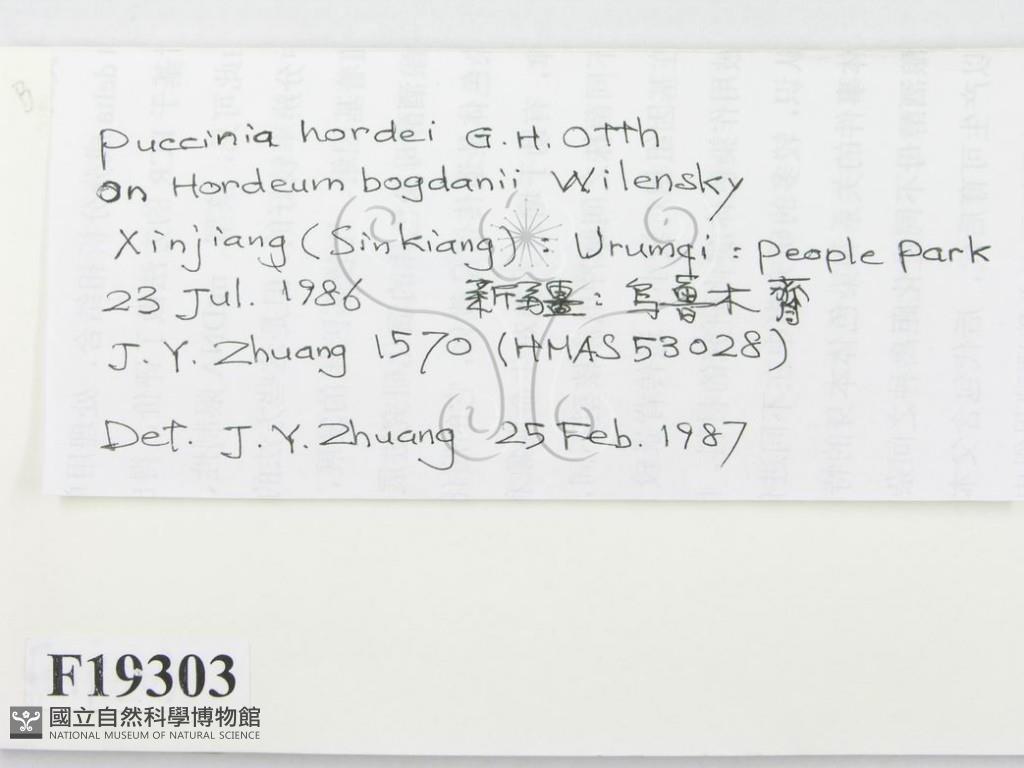 Puccinia hordei G.H. Otth
on Hordeum bogdanii Wilensky
Xinjiang (Sinkiang): Urumqi: People Park
23 Jul. 1986 新疆: 烏魯木齊
J. Y. Zhuang 1570 (HMAS 53028)
Det. J. Y. Zhuang 25 Feb. 1987
F19303
國立自然科學博物館
NATIONAL MUSEUM OF NATURAL SCIENCE